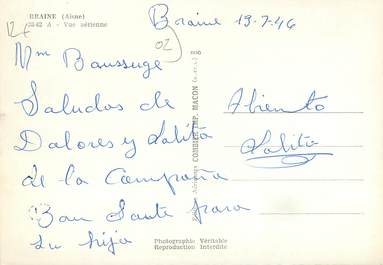 BRAINE (Aisne)
3842 A - Vue aérienne
Braine 19-7-46
02
Mm Baussuge
Saludos de
Dalores y Lolita
de la Compaña
Bon Sante para
su hija
Abiento
Lolita
COMBIER IMP. MACON
Photographie Véritable
Reproduction Interdite